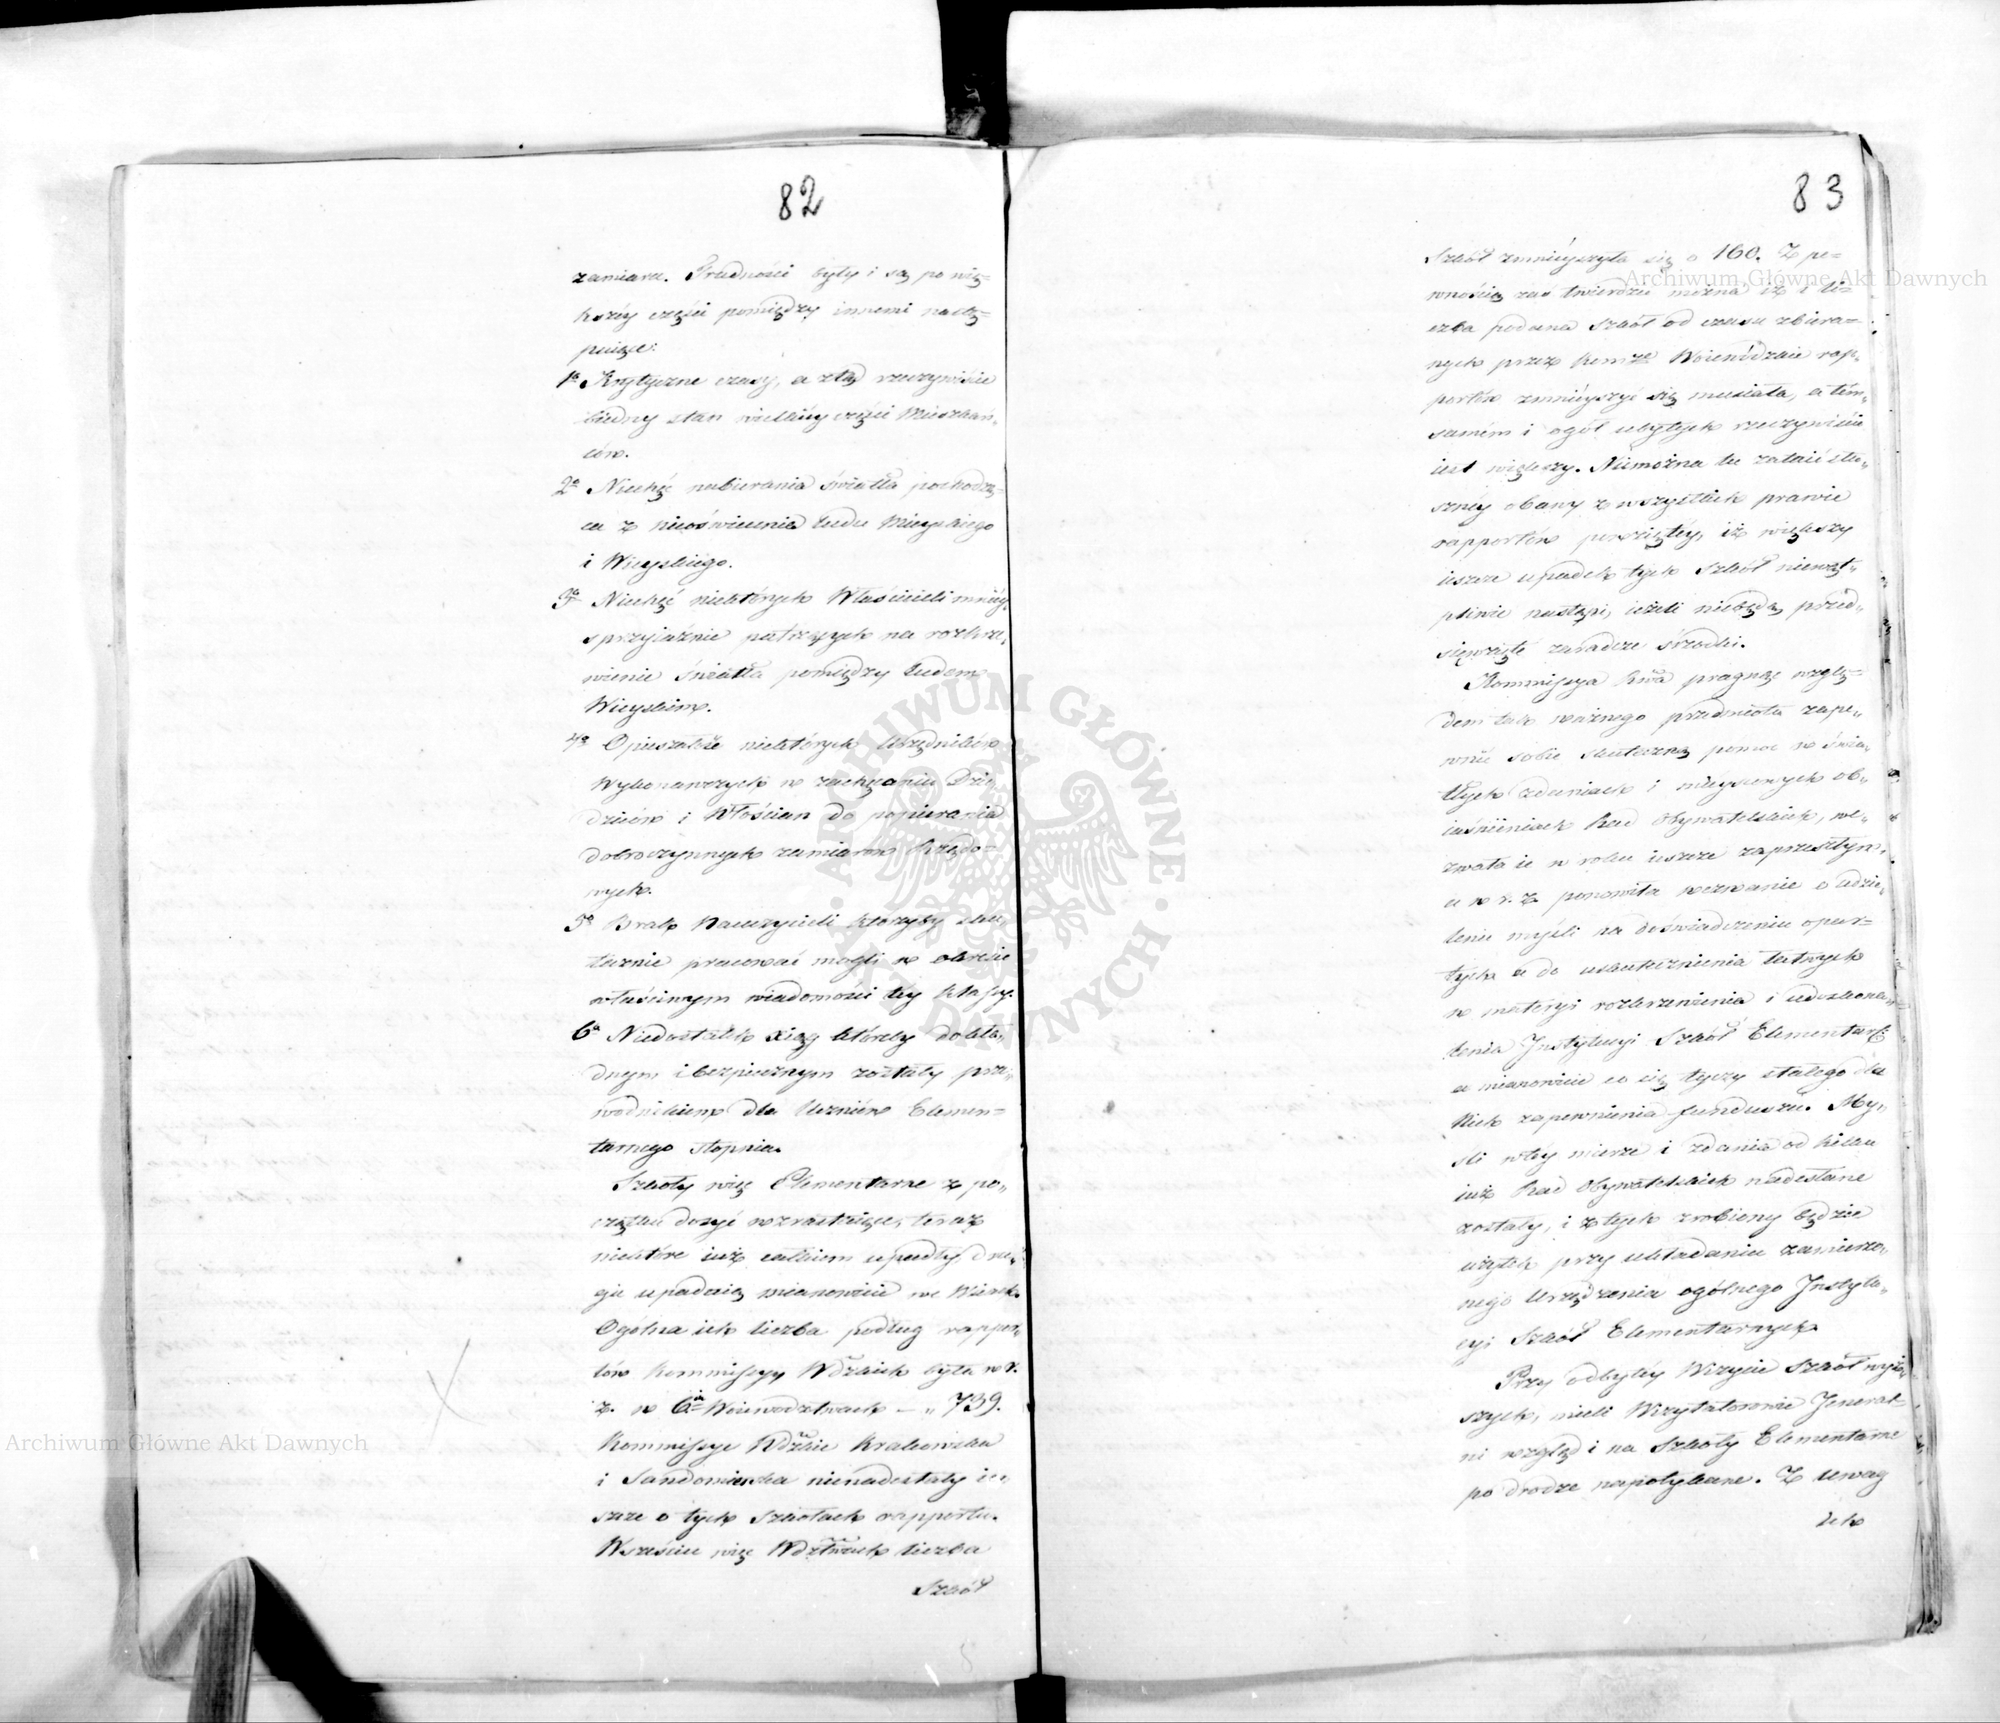 82
zamiaru. Trudności były i są po więk=
kszéy części pomiędzy innemi nastę=
puiące:
1º Krytyczne czasy, a ztąd rzeczywiście
biedny stan wielkiéy części Mieszkań,,
ców.
2º Niechęć nabierania światła pochodzą,,
ca z nieoświecenia Ludu Mieyskiego
i Wieyskiego.
3º Niechęć niektórych Właścicieli mniéy
sprzyiaźnie patrzących na rozkrze,,
wienie światła pomiędzy Ludem
Wieyskim.
4º Opieszałość niektórych Urzędników
Wykonawczych w zachęcaniu Dzie,,
dziców i Włościan do popierania
dobroczynnych zamiarów Rządo=
wych.
5º Brak Nauczycieli którzyby sku,,
tecznie pracować mogli w obrębie
właściwym wiadomości tey klassy.
6º Niedostatek xiąg któreby dokła,,
dnym i bezpiecznym zostały prze,,
wodnikiem dla Uczniów Elemen=
tarnego stopnia.
Szkoły więc Elementarne z po,,
czątku dosyć wzrastaiące, teraz
niektóre iuż całkiem upadły, dru,,
gie upadaią mianowicie we Wsiach.
Ogólna ich liczba podług rappor,,
tów Kommissyy Wdzkich była w r.
z. w 6iu Woiewodztwach – ,, 739.
Kommissye Wdzkie Krakowska
i Sandomierska nienadesłały ie,,
szcze o tych szkołach rapportu.
W sześciu więc Wdztwach liczba
Szkół
83
Szkół zmnieyszyła się o 160. Z pe=
wnością zaś twierdzić można, iż i li=
czba podana szkół od czasu zbiera=
nych przez Kommsse Woiewódzkie rap,,
portów zmnieyszyć się musiała, a tém,,
samém i ogół ubyłych rzeczywiście
iest większy. Niemożna tu zataić słu,,
sznéy obawy z wszystkich prawie
rapportów powziętéy, iż większy
ieszcze upadek tych szkół niewąt,,
pliwie nastąpi, ieżeli niebędą przed,,
sięwzięte zaradcze śrzodki.
Kommissya Rwa pragnąc wzglę=
dem tak ważnego przedmiotu zape,,
wnić sobie skuteczną pomoc w świa,,
tłych zdaniach i mieyscowych ob,,
iaśnieniach Rad Obywatelskich, we,,
zwała ie w roku ieszcze zaprzeszłym,
a w r. z. ponowiła wezwanie o udzie,,
lenie myśli na doświadczeniu opar=
tych a do uskutecznienia łatwych
w materyi rozkrzewienia i udoskona,,
lenia Instytucyi Szkół Elementar:
a mianowicie co się tyczy stałego dla
nich zapewnienia funduszu. My,,
śli w téy mierze i zdania od kilku
iuż Rad Obywatelskich nadesłane
zostały, i z tych zrobiony będzie
użytek przy układaniu zamierzo,,
nego Urządzenia ogólnego Instytu,,
cyi Szkół Elementarnych.
Przy odbytéy Wizycie Szkół wyż,,
szych, mieli Wizytatorowie Jeneral=
ni wzgląd i na Szkoły Elementarne
po drodze napotykane. Z uwag
ich
Archiwum Główne Akt Dawnych
Archiwum Główne Akt Dawnych
ARCHIWUM GŁÓWNE · AKT DAWNYCH ·